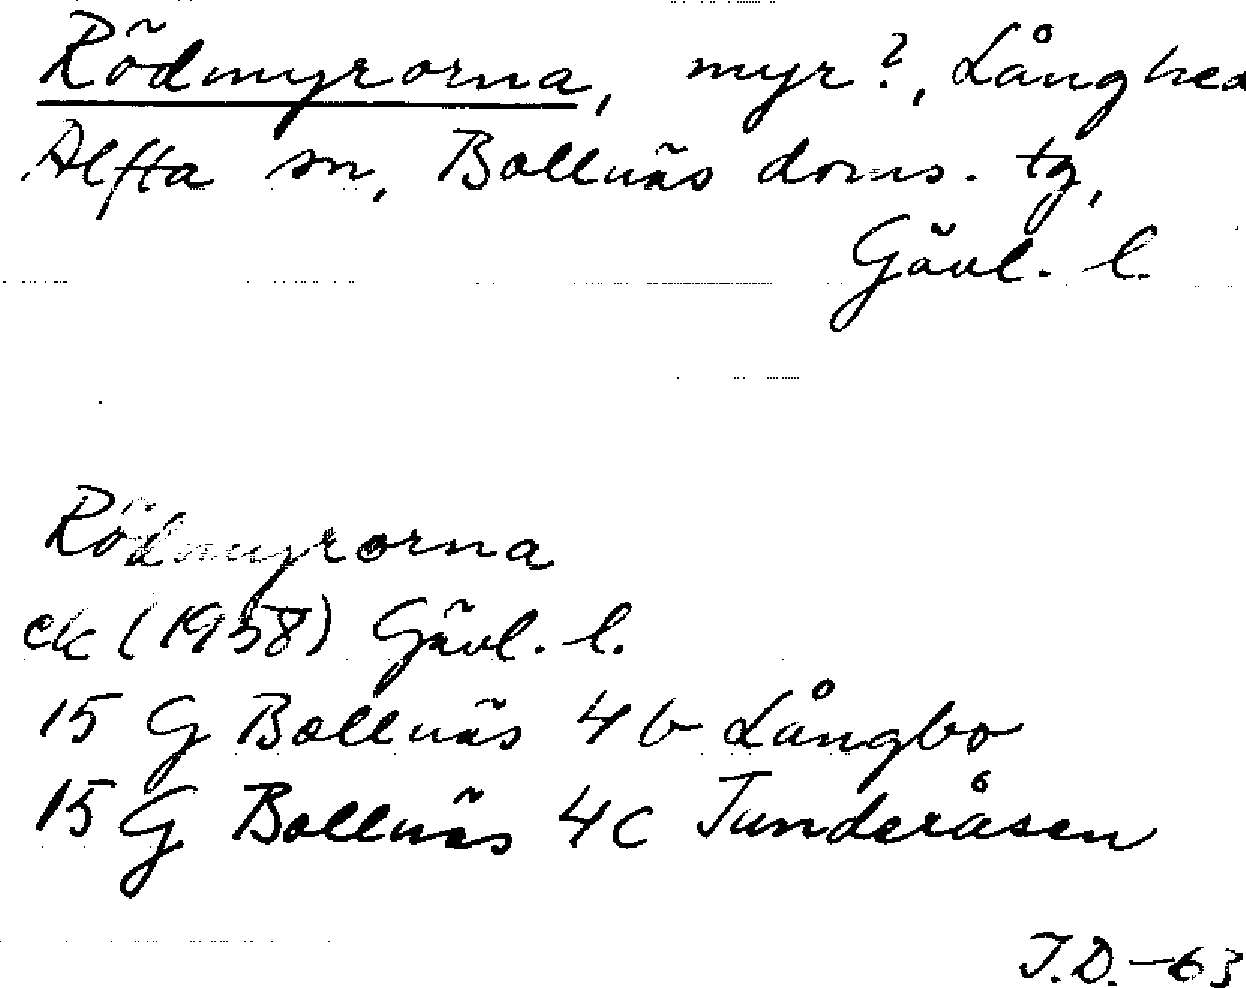 Rödmyrorna, myr?, Långhed
Alfta sn, Bollnäs doms. tg,
Gävl. l.
Rödmyrorna
ek (1958) Gävl. l.
15 G Bollnäs 4b Långbo
15 G Bollnäs 4c Tunderåsen
T.D.-63